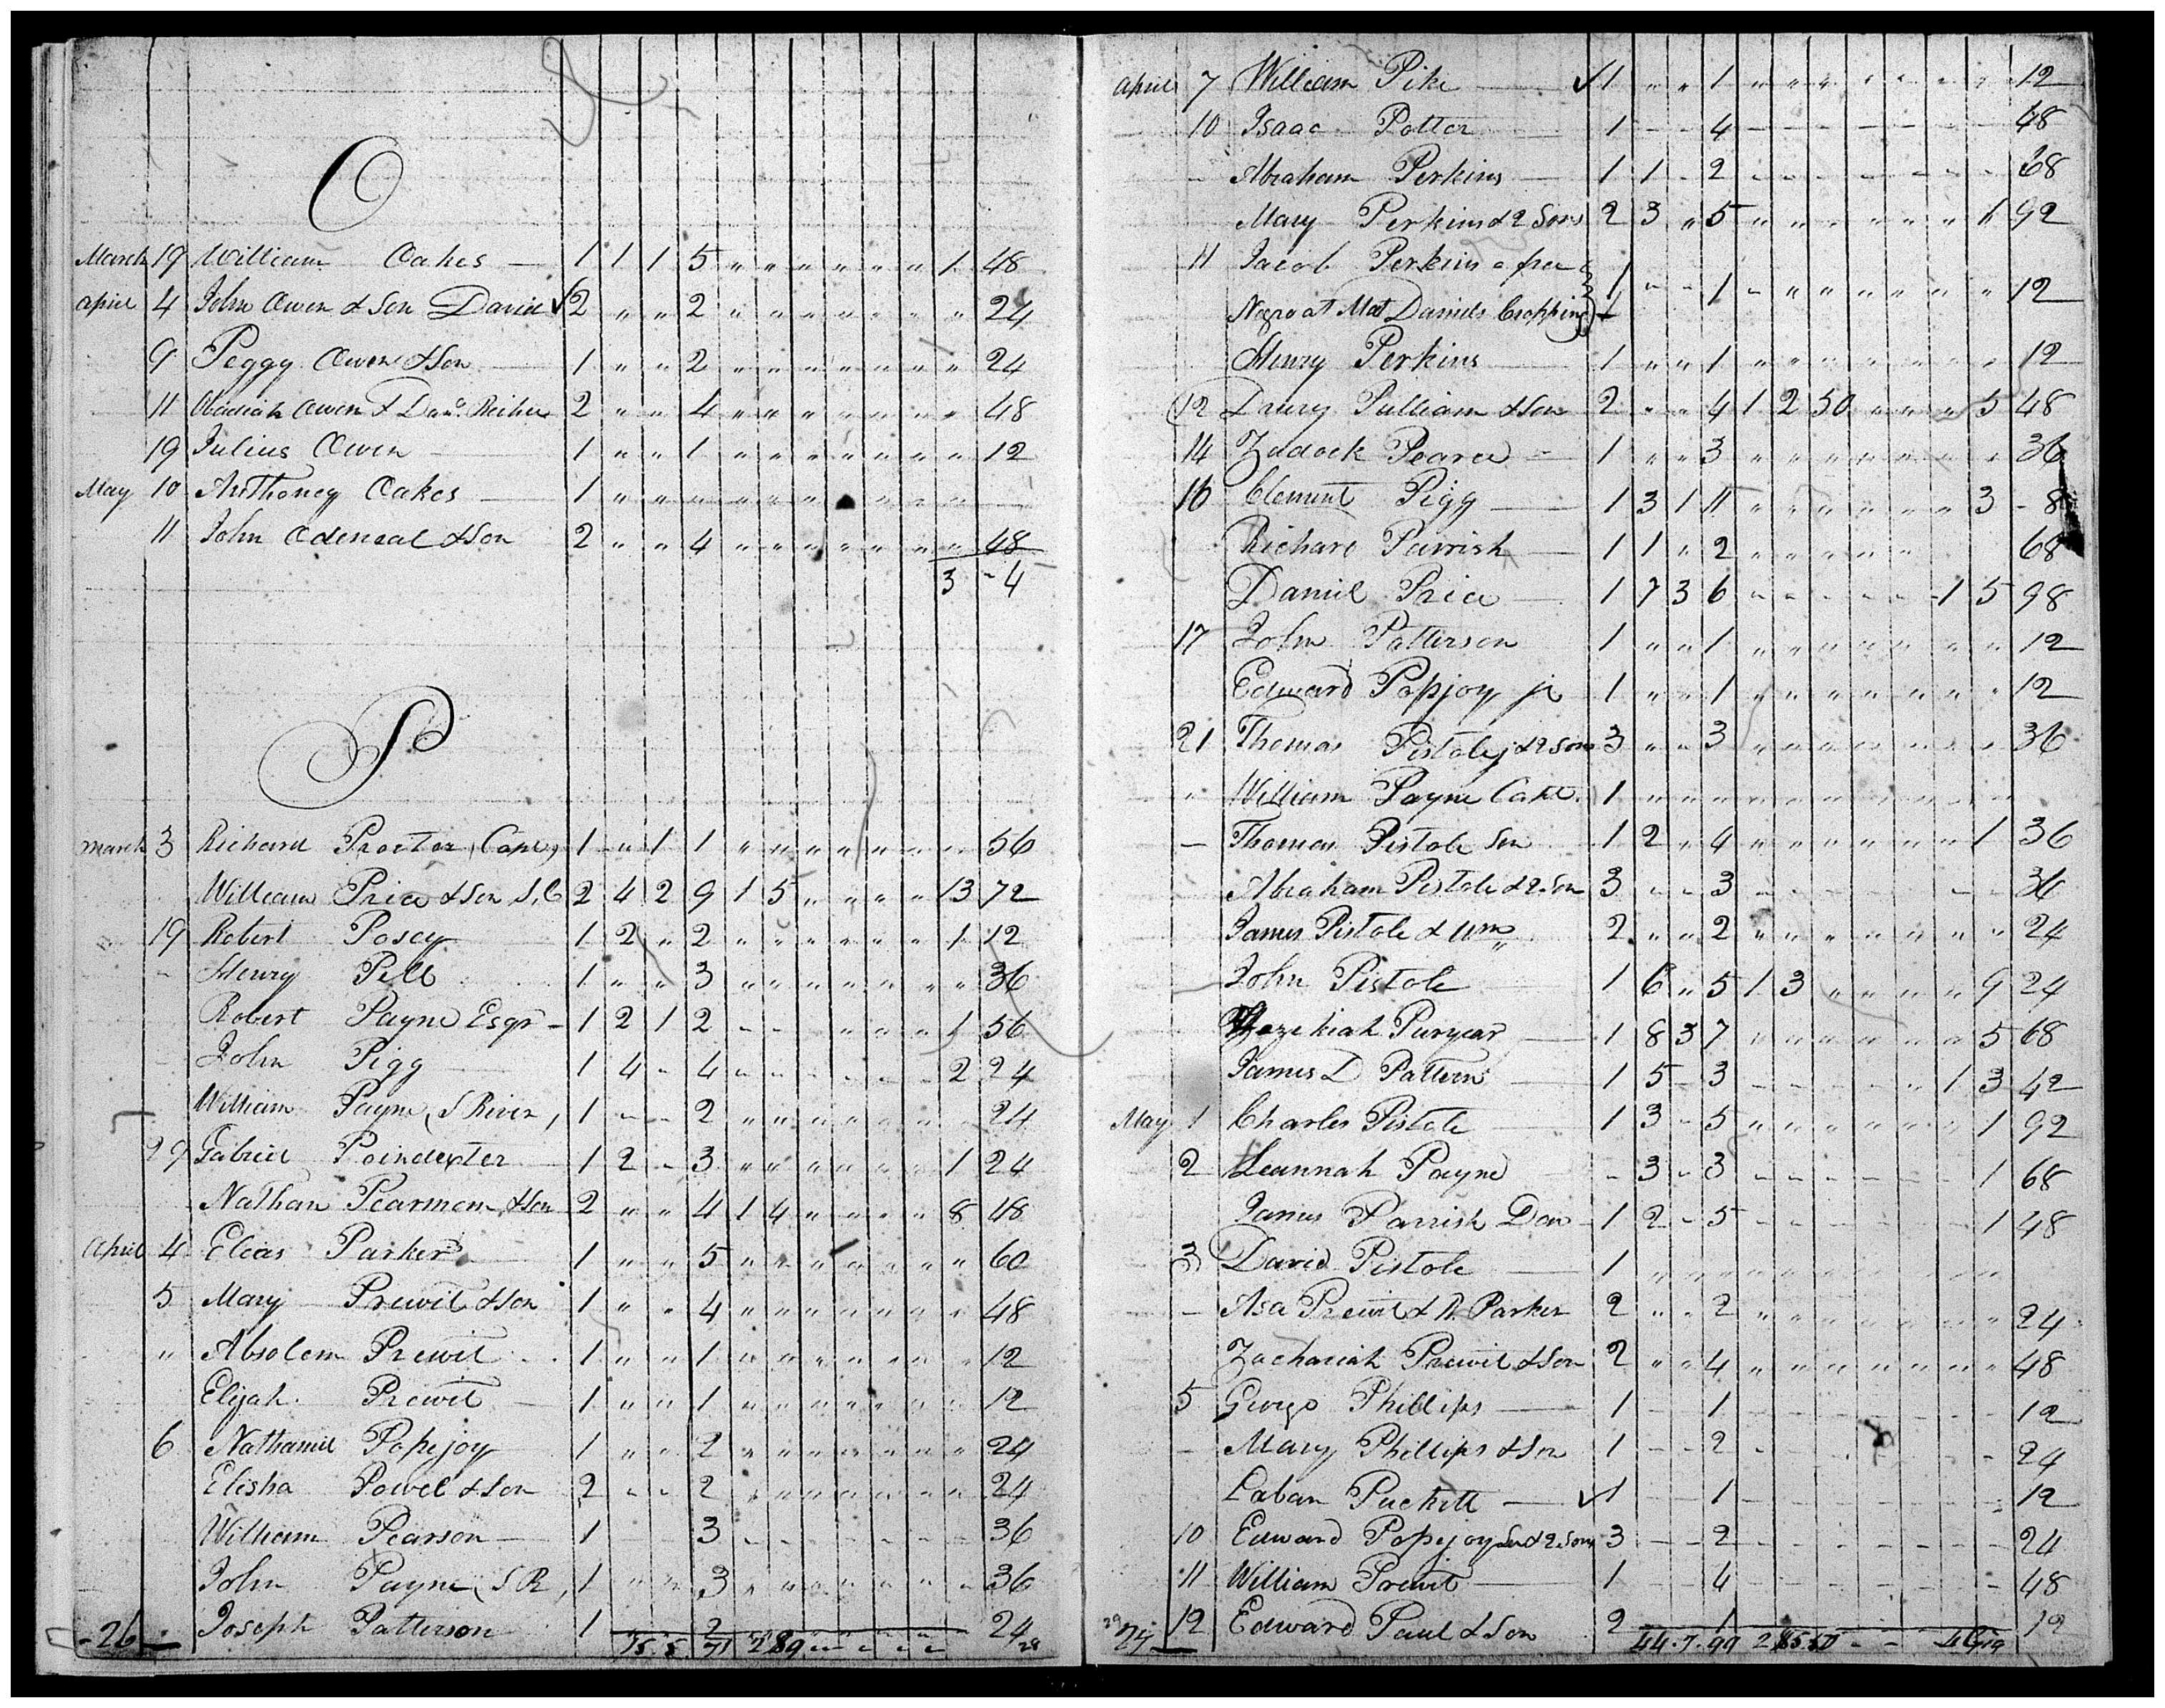 O
March 19 William Oakes 1 1 1 5 " " " " " " 1 48
April 4 John Owen & Son David ✓ 2 " " 2 " " " " " " " 24
9 Peggy Owen & Son 1 " " 2 " " " " " " " 24
11 Obadiah Owen & 2 " " 4 " " " " " " " 48
19 Julius Owen 1 " " 1 " " " " " " " 12
May 10 Anthoney Oakes 1 " " " " " " " " " "
11 John Odeneal & Son 2 " " 4 " " " " " " " 48
3 - 4
P
March 3 Richard Procter, Cane, 1 " 1 1 " " " " " " " 56
William Price & Son S. C 2 4 2 9 1 5 " " " " 13 72
19 Robert Posey 1 2 " 2 " " " " " " 1 12
- Henry Pell 1 " " 3 " " " " " " " 36
Robert Payne Esqr - 1 2 1 2 - - " " " " 1 56
John Pigg 1 4 - 4 - - - - - - 2 24
William Payne, S River, 1 - - 2 " " " " " " " 24
29 Gabriel Poindexter 1 2 - 3 " " " " " " 1 24
Nathan Pearman & Son 2 " " 4 1 4 " " " " 8 48
April 4 Elias Parker 1 " " 5 " " " " " " " 60
5 Mary Prewit & Son 1 " " 4 " " " " " " " 48
" Absolem Prewit 1 " " 1 " " " " " " " 12
Elijah Prewit 1 " " 1 " " " " " " " 12
6 Nathaniel Popejoy 1 " " 2 " " " " " " " 24
Elisha Powel & Son 2 - - 2 " " " " " " " 24
William Pearson 1 3 - - - - - - - 36
John Payne, S R, 1 " " 3 " " " " " " " 36
Joseph Patterson 1 2 24
- 26 - 15. 5. 71 2 89
April 7 William Pike ✓ 1 " " 1 " " " " " " " 12
10 Isaac Potter 1 - - 4 - - - - - - - 48
- Abraham Perkins 1 1 - 2 - - - - - - - 68
Mary Perkins & 2 Sons 2 3 " 5 " " " " " " 1 92
11 Jacob Perkins a free
Negro at Mat Daniels Cropping 1 - - 1 - " " " " " " 12
Henry Perkins 1 " " 1 " " " " " " " 12
12 Drury Pulliam & Son 2 " " 4 1 2 50 " " " 5 48
14 Zadock Pearce 1 " " 3 " " " " " " " 36
16 Clement Pigg 1 3 1 11 " " " " " " 3 - 8
Richard Parrish 1 1 " 2 " " " " " 68
Daniel Price 1 7 3 6 - - - - - 1 5 98
17 John Patterson 1 " " 1 " " " " " " " 12
Edward Popjoy jr 1 " " 1 " " " " " " " 12
21 Thomas Pistole j & 2 Sons 3 " " 3 " " " " " " " 36
" William Payne 1 " " " " " " " " " "
- Thomas Pistole Sen 1 2 " 4 " " " " " " 1 36
Abraham Pistole & 2 Son 3 - - 3 - - - - - - - 36
James Pistole & Wm 2 " " 2 " " " " " " " 24
John Pistole 1 6 " 5 1 3 " " " " 9 24
Hezekiah Puryear 1 8 3 7 " " " " " " 5 68
James D Pattern 1 5 - 3 - - - - - 1 3 42
May 1 Charles Pistole 1 3 - 5 " " " " " " 1 92
2 Leannah Payne - 3 - 3 - - - - - - 1 68
James Parrish Dan 1 2 - 5 - - - - - - 1 48
3 David Pistole 1 " " " " " " " " " "
- Asa Prewit & N. Parker 2 " " 2 " " " " " " " 24
Zachariah Prewit & Son 2 " " 4 " " " " " " " 48
5 George Phillips 1 - 1 - - - - - - - 12
- Mary Phillips & Son 1 - - 2 - - - - - - - 24
Laban Puckett ✓ 1 - - 1 - - - - - - - 12
10 Edward Popejoy Sen & 2 Sons 3 - - 2 - - - - - - - 24
11 William Prewit 1 - - 4 - - - - - - - 48
12 Edward Paul & Son 2 1 12
44. 7. 99